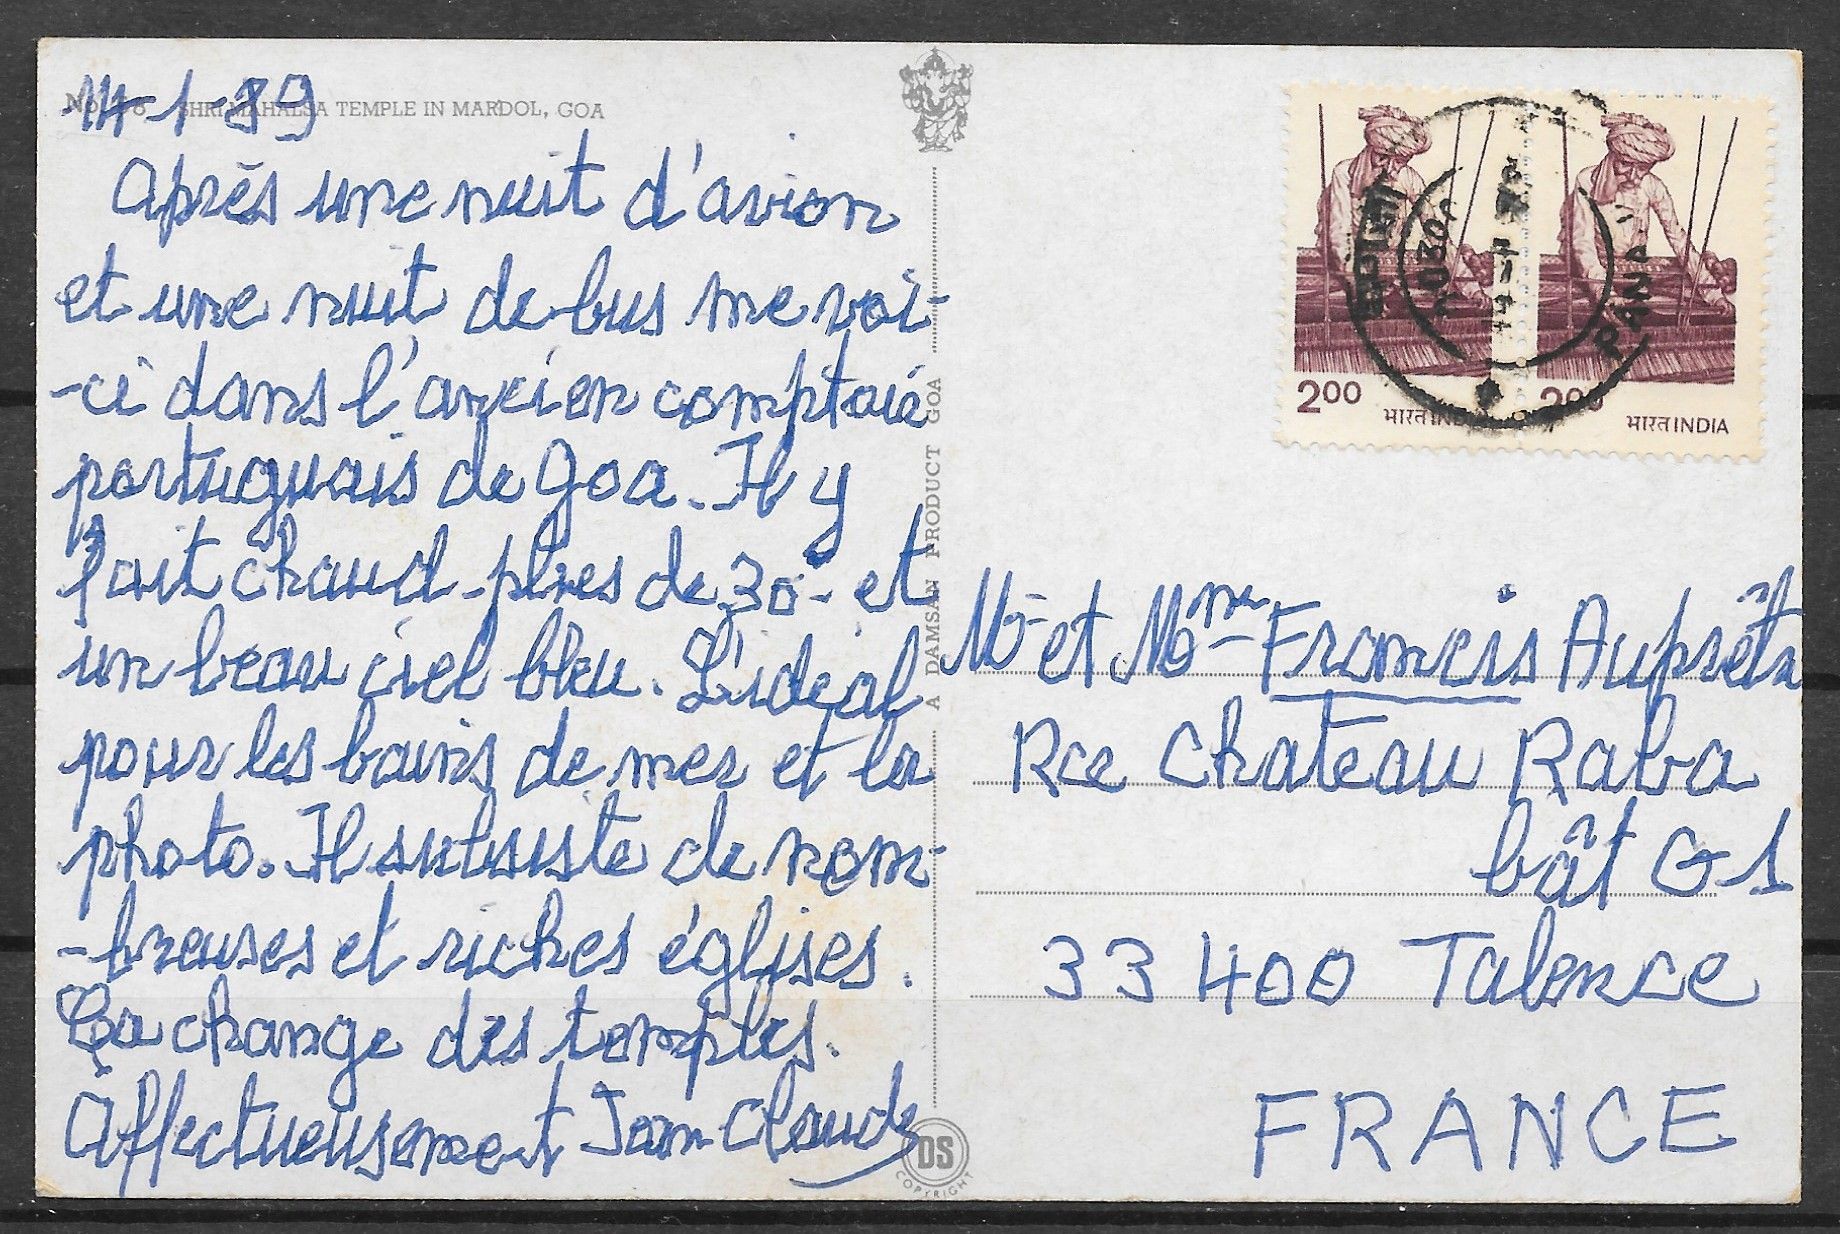 14-1-89
SHRI MAHALSA TEMPLE IN MARDOL, GOA
Après une nuit d'avion
et une nuit de bus me voi-
-ci dans l'ancien comptoir
portuguais de Goa. Il y
fait chaud - plus de 30° - et
un beau ciel bleu. L'idéal
pour les bains de mer et la
photo. Il subsiste de nom-
-breuses et riches églises.
Ça change des temples.
Affectueusement Jean-Claude
A DAMSAN PRODUCT GOA
DS
COPYRIGHT
2.00
भारत INDIA
2.00
भारत INDIA
Mr et Mme Francis Auprêtre
Rce Chateau Raba
bât G1
33400 Talence
FRANCE